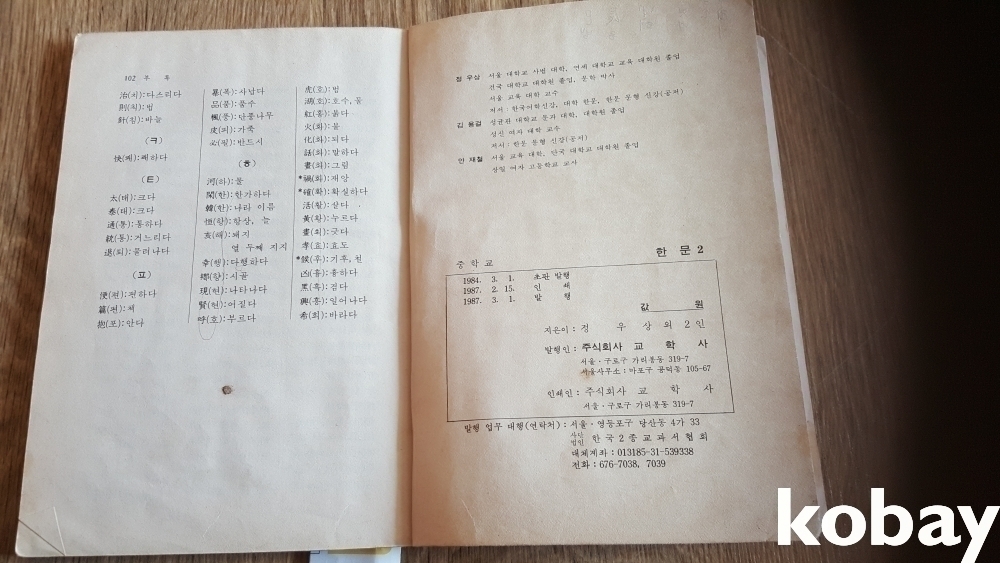 102 부 록
治(치):다스리다
則(칙):법
針(침):바늘
(ㅋ)
快(쾌):쾌하다
(ㅌ)
太(태):크다
泰(태):크다
通(통):통하다
統(통):거느리다
退(퇴):물러나다
(ㅍ)
便(편):편하다
篇(편):책
抱(포):안다
暴(폭):사납다
品(품):품수
楓(풍):단풍나무
皮(피):가죽
必(필):반드시
(ㅎ)
河(하):물
閑(한):한가하다
韓(한):나라 이름
恒(항):항상, 늘
亥(해):돼지
열 두째 지지
幸(행):다행하다
鄕(향):시골
現(현):나타나다
賢(현):어질다
呼(호):부르다
虎(호):범
湖(호):호수, 물
紅(홍):붉다
火(화):불
化(화):되다
話(화):말하다
畫(화):그림
*禍(화):재앙
*確(확):확실하다
活(활):살다
黃(황):누르다
畫(획):긋다
孝(효):효도
*候(후):기후, 철
凶(흉):흉하다
黑(흑):검다
興(흥):일어나다
希(희):바라다
정 우상 서울 대학교 사범 대학, 연세 대학교 교육 대학원 졸업
건국 대학교 대학원 졸업, 문학 박사
서울 교육 대학 교수
저서 : 한국어학신강, 대학 한문, 한문 문형 신강(공저)
김 용걸 성균관 대학교 문과 대학, 대학원 졸업
성신 여자 대학 교수
저서 : 한문 문형 신강(공저)
안 재철 서울 교육 대학, 단국 대학교 대학원 졸업
상일 여자 고등학교 교사
중학교 한 문 2
1984. 3. 1. 초판 발행
1987. 2. 15. 인 쇄
1987. 3. 1. 발 행
값 원
지은이 : 정 우 상 외 2 인
발행인 : 주식회사 교 학 사
서울・구로구 가리봉동 319-7
서울사무소 : 마포구 공덕동 105-67
인쇄인 : 주식회사 교 학 사
서울・구로구 가리봉동 319-7
발행 업무 대행(연락처) : 서울・영등포구 당산동 4가 33
사단법인 한국2종교과서협회
대체계좌 : 013185-31-539338
전화 : 676-7038, 7039
kobay